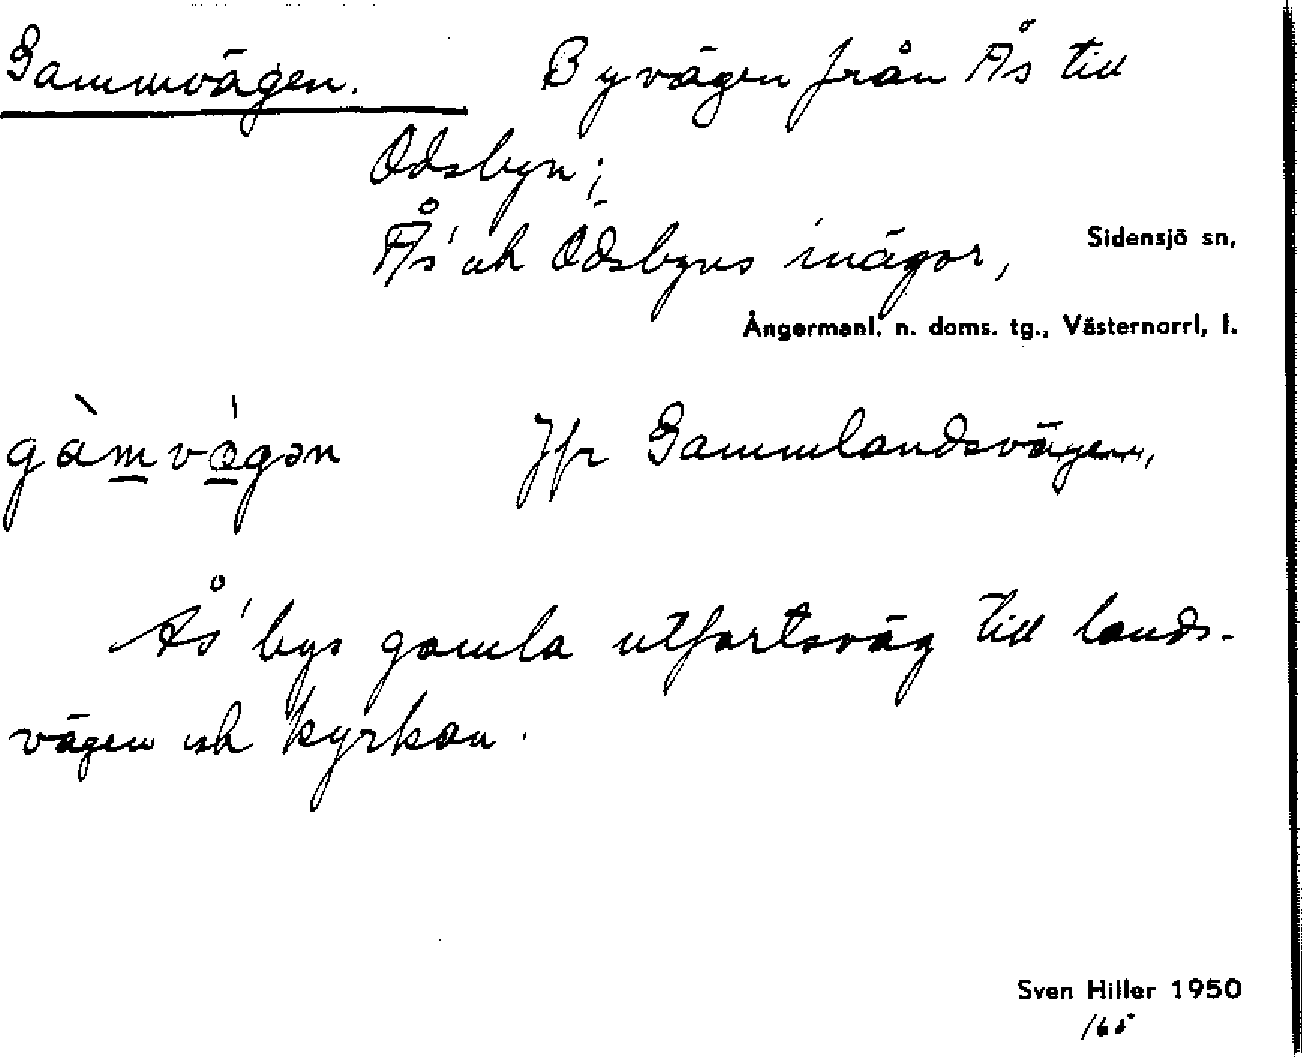 Gammvägen. Byvägen från Ås till
Ödsbyn;
Ås' och Ödsbyns inägor, Sidensjö sn,
Ångermanl. n. doms. tg., Västernorrl. l.
gàmvágən Jfr Gammlandsvägen,
Ås' bys gamla utfartsväg till lands-
vägen och kyrkan.
Sven Hiller 1950
165